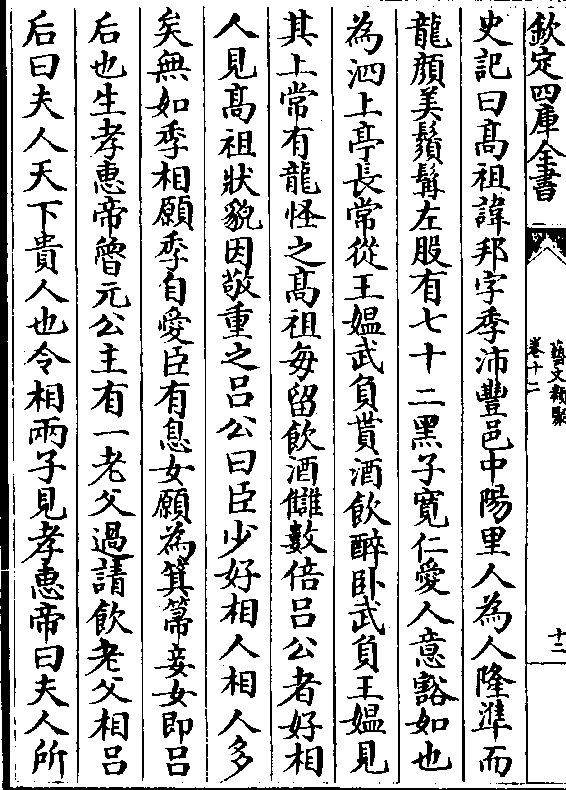 欽定四庫全書
藝文類聚
卷十二
十三
史記曰髙祖諱邦字季沛豐邑中陽里人為人隆準而
龍顔美鬚髯左股有七十二黑子寛仁愛人意豁如也
為泗上亭長常從王媪武負貰酒飲醉卧武負王媪見
其上常有龍怪之髙祖每留飲酒讎數倍吕公者好相
人見髙祖狀貌因敬重之吕公曰臣少好相人相人多
矣無如季相願季自愛臣有息女願為箕箒妾女即吕
后也生孝惠帝魯元公主有一老父過請飲老父相吕
后曰夫人天下貴人也令相兩子見孝惠帝曰夫人所